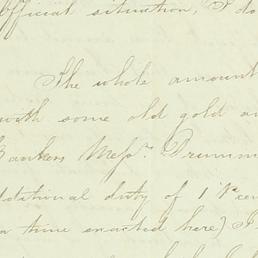 Official situation, I do
The whole amount
with some old gold
Bankers Messrs. Drumm
dditional duty of 1 Pr cen
a time exacted here)